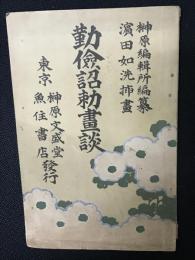 榊原編輯所編纂
濱田如洗挿畫
勤儉詔勅畫談
東京 榊原文盛堂
魚住書店發行